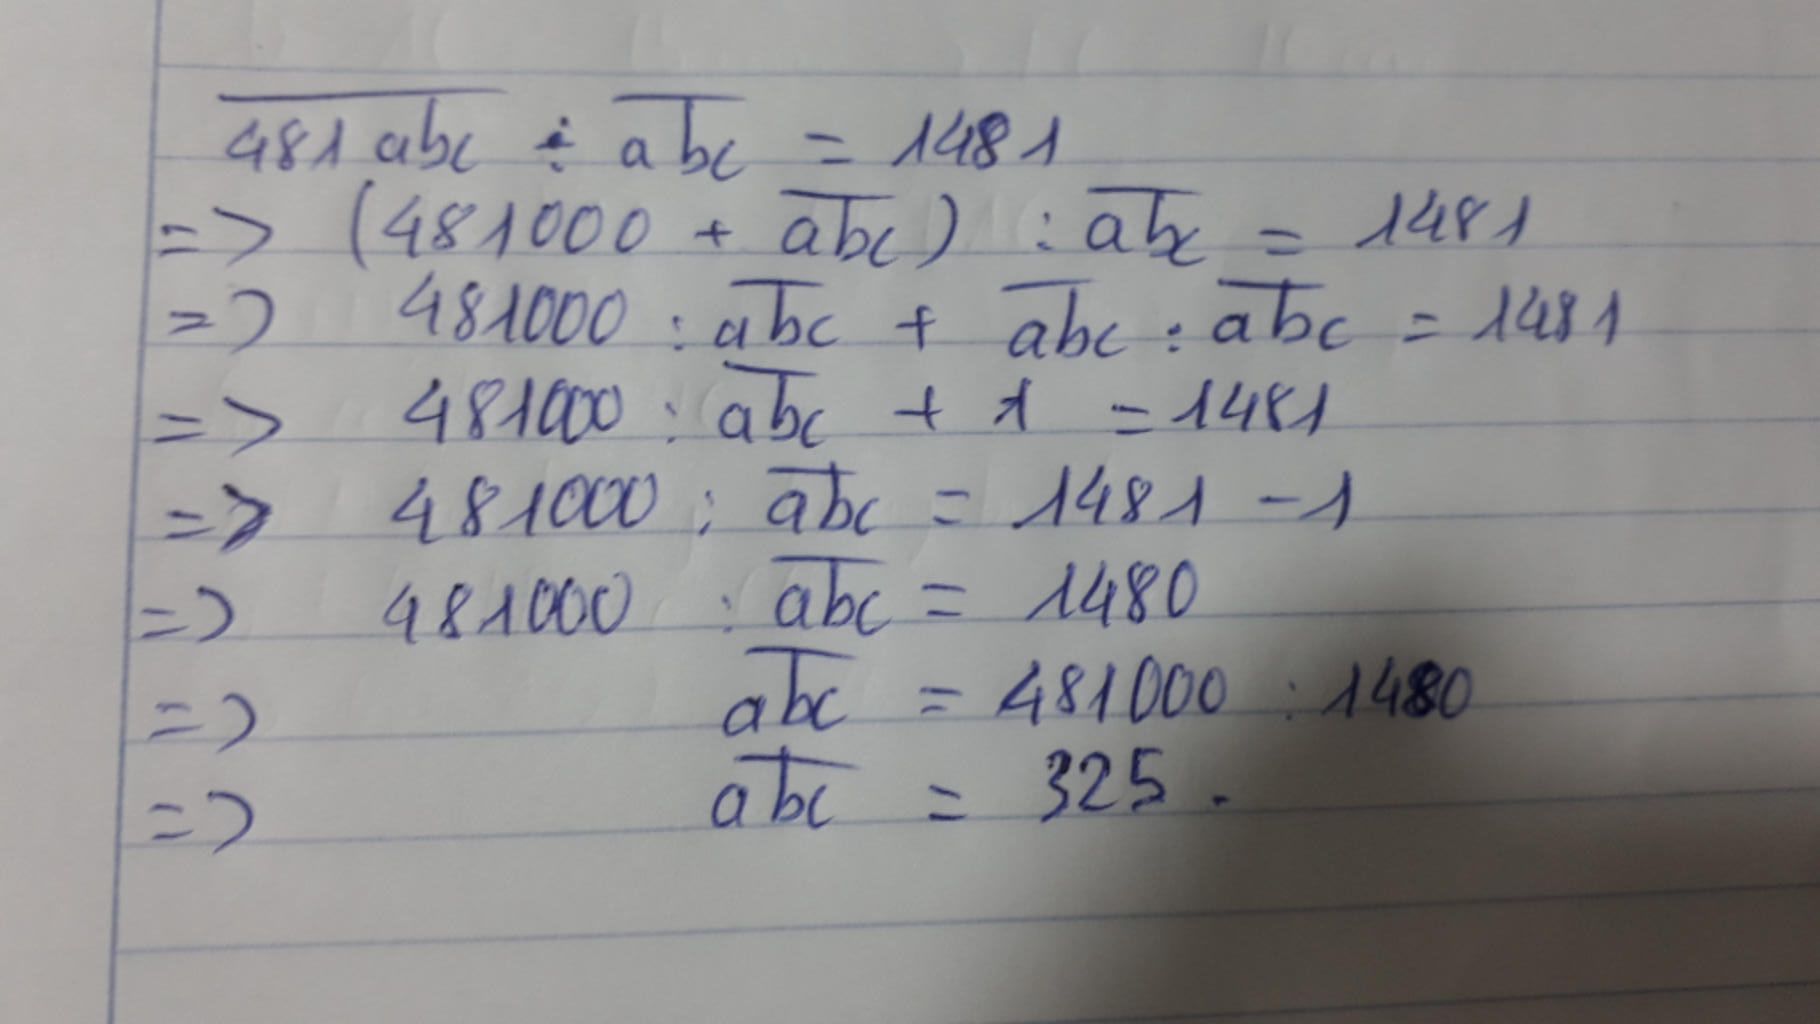 $\overline{481abc} \div \overline{abc} = 1481$
=> $(481000 + \overline{abc}) : \overline{abc} = 1481$
=> $481000 : \overline{abc} + \overline{abc} : \overline{abc} = 1481$
=> $481000 : \overline{abc} + 1 = 1481$
=> $481000 : \overline{abc} = 1481 - 1$
=> $481000 : \overline{abc} = 1480$
=> $\overline{abc} = 481000 : 1480$
=> $\overline{abc} = 325.$